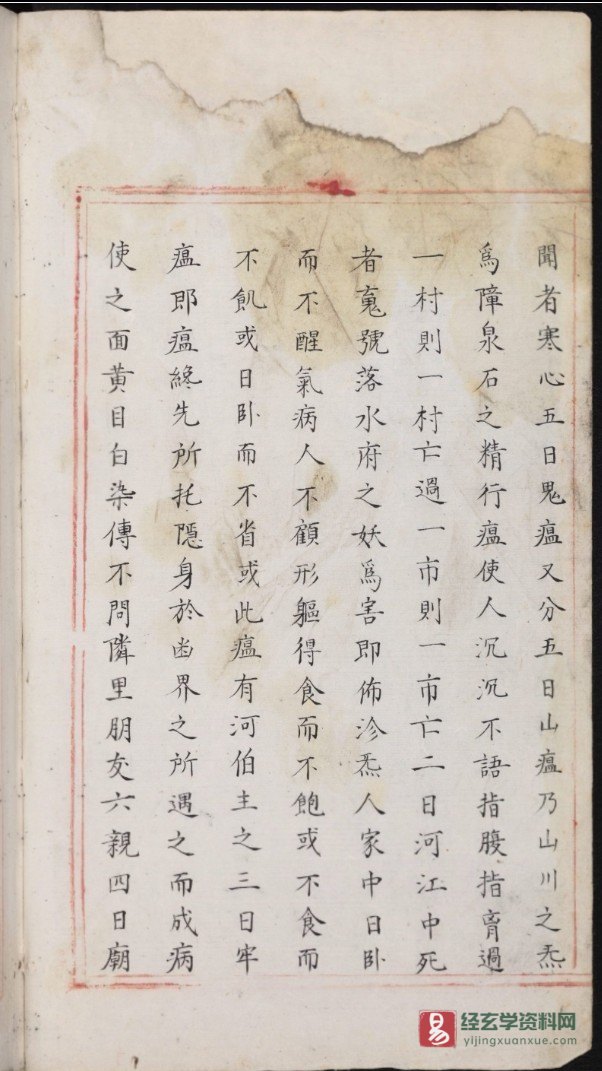 聞者寒心五曰鬼瘟又分五曰山瘟乃山川之炁
爲障泉石之精行瘟使人沉沉不語指腹指肓過
一村則一村亡過一市則一市亡二曰河江中死
者蒐號落水府之妖爲害即佈沴炁人家中日卧
而不醒氣病人不顧形軀得食而不飽或不食而
不飢或日卧而不省或此瘟有河伯主之三曰牢
瘟即瘟終先所托隱身於凾界之所遇之而成病
使之面黄目白染傳不問隣里朋友六親四曰廟
经玄学资料网
yijingxuanxue.com